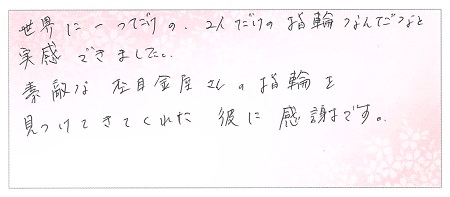 世界に一つだけの、2人だけの指輪なんだなと
実感できました。
素敵な杢目金屋さんの指輪を
見つけてきてくれた 彼に感謝です。